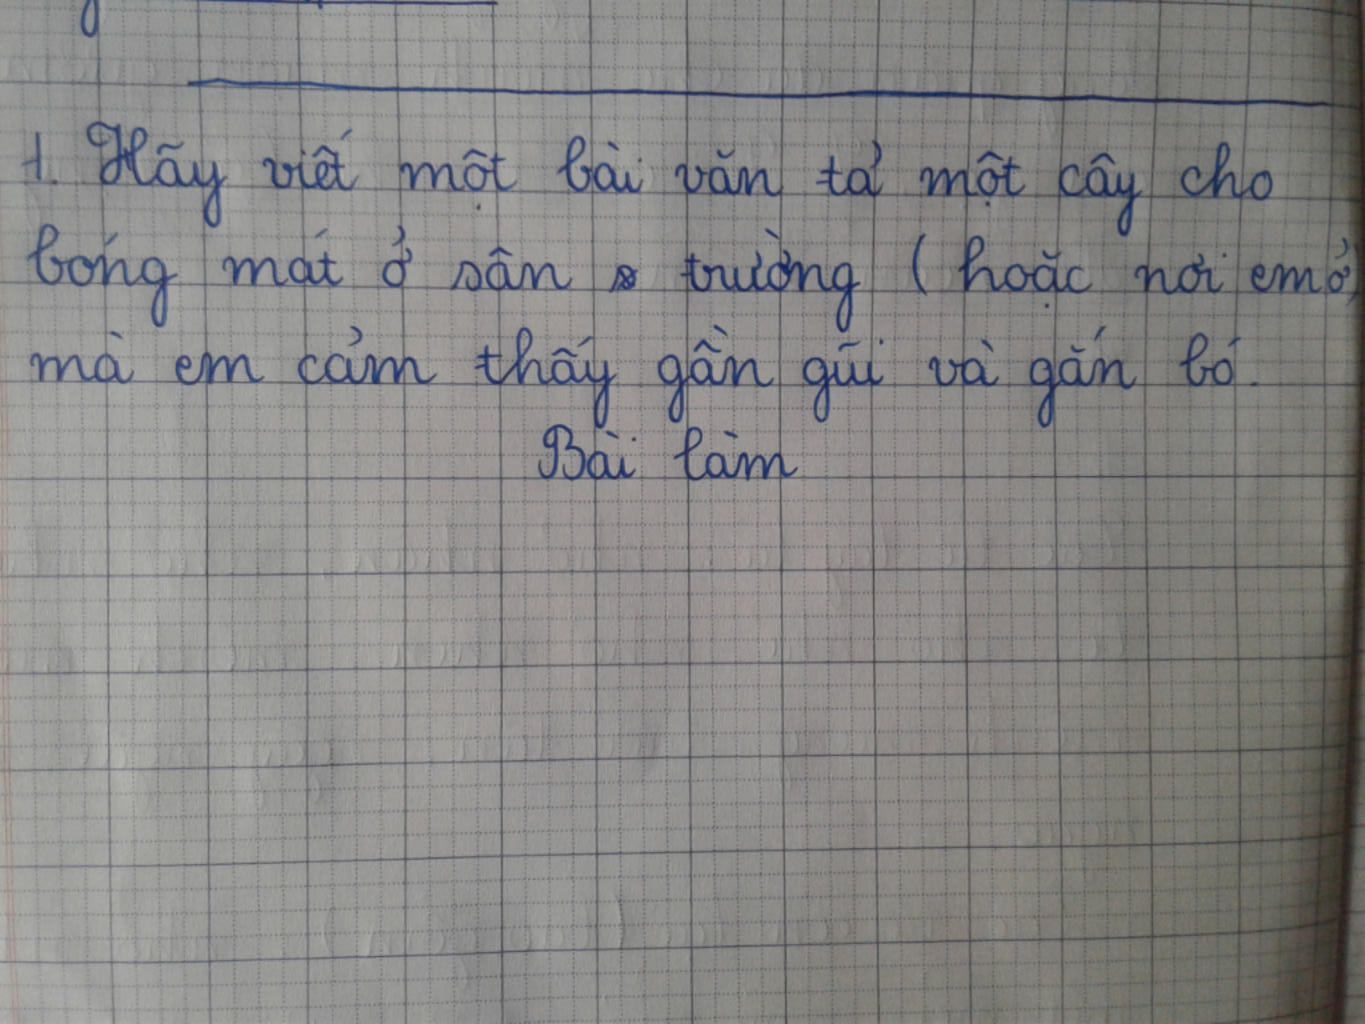 1. Hãy viết một bài văn tả một cây cho
bóng mát ở sân trường (hoặc nơi em ở)
mà em cảm thấy gần gũi và gắn bó.
Bài làm